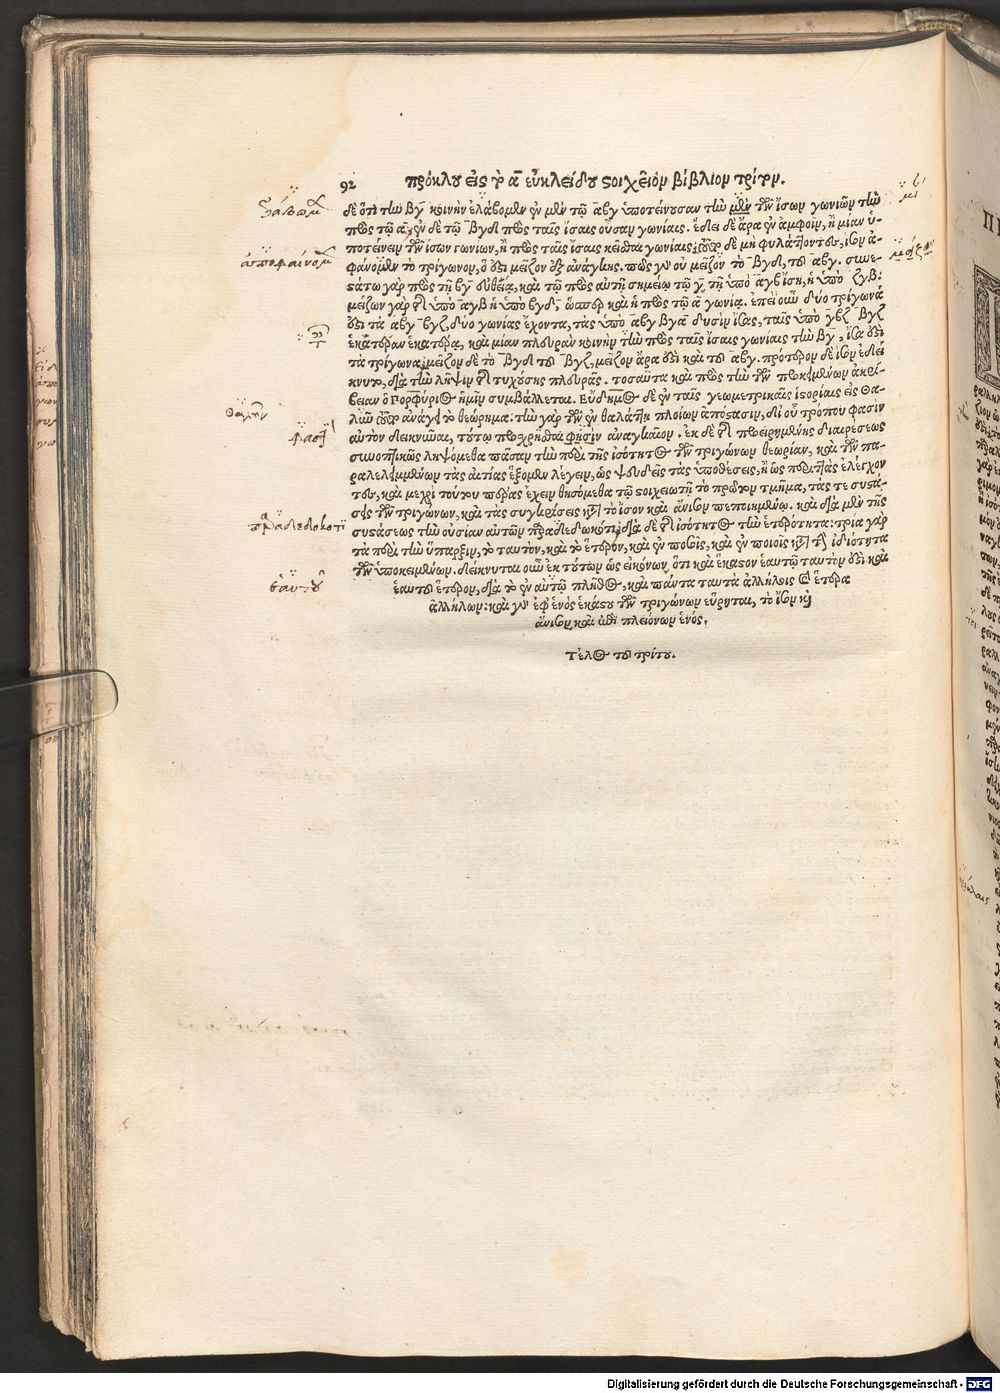 92 πρόκλου εἰς τὸ α εὐκλείδου στοιχεῖον βιβλίον τρίτον.
δὲ ὅτι τὴν βγ κοινὴν ἐλάβομεν ἐν μὲν τῷ αβγ ὑποτείνουσαν τὴν μίαν τῶν ἴσων γωνιῶν τὴν
πρὸς τῷ α, ἐν δὲ τῷ βγδ πρὸς ταῖς ἴσαις οὖσαν γωνίαις. ἔδει δὲ ἄρα ἐν ἀμφοῖν, ἢ μίαν ὑ-
ποτείνειν τῶν ἴσων γωνιῶν, ἢ πρὸς ταῖς ἴσαις κεῖσθαι γωνίαις. ὅπερ δὲ μὴ φυλάττοντες, ἴσον ἀ-
φανοῦμεν τὸ τρίγωνον, ὅ ἐστι μεῖζον ἐξ ἀνάγκης. πῶς γὰρ οὐ μεῖζον τὸ βγδ, τοῦ αβγ. συνε-
στάτω γὰρ πρὸς τῇ βγ εὐθείᾳ, καὶ τῷ πρὸς αὐτῇ σημείῳ τῷ γ, τῇ ὑπὸ αγβ ἴση, ἡ ὑπὸ ζγβ:
μείζων γὰρ τῆς ὑπὸ αγβ ἡ ὑπὸ βγδ, ὥσπερ καὶ ἡ πρὸς τῷ α γωνία. ἐπεὶ οὖν δύο τρίγωνά
ἐστι τὰ αβγ βγζ, δύο γωνίας ἔχοντα, τὰς ὑπὸ αβγ βγα δυσὶν ἴσας, ταῖς ὑπὸ γβζ βγζ
ἑκατέραν ἑκατέρᾳ, καὶ μίαν πλευρὰν κοινὴν τὴν πρὸς ταῖς ἴσαις γωνίαις τὴν βγ, ἴσα ἐστὶ
τὰ τρίγωνα, μεῖζον δὲ τὸ βγδ τοῦ βγζ, μεῖζον ἄρα ἐστὶ καὶ τοῦ αβγ. πρότερον δὲ ἴσον ἐδεί
κνυτο, διὰ τὴν λῆψιν τῆς τυχούσης πλευρᾶς. τοσαῦτα καὶ πρὸς τὴν τῶν προκειμένων ἀκρί-
βειαν ὁ πορφύριος ἡμῖν συμβάλλεται. Εὔδημος δὲ ἐν ταῖς γεωμετρικαῖς ἱστορίαις εἰς Θα-
λῆν τοῦτο ἀνάγει τὸ θεώρημα: τὴν γὰρ τῶν ἐν θαλάττῃ πλοίων ἀπόστασιν, δι' οὗ τρόπου φασὶν
αὐτὸν δεικνύναι, τούτῳ προχρῆσθαι φησὶν ἀναγκαῖον. ἐκ δὲ τῆς προειρημένης διαιρέσεως
συνοπτικῶς ληψόμεθα πᾶσαν τὴν περὶ τῆς ἰσότητος τῶν τριγώνων θεωρίαν, καὶ τῶν πα-
ραλελειμμένων τὰς αἰτίας ἕξομεν λέγειν, ὡς ψευδεῖς τὰς ὑποθέσεις, ἢ ὡς περιττὰς ἐλέγχον
τες, καὶ μέχρι τούτου πέρας ἔχειν θησόμεθα τῷ στοιχειωτῇ τὸ πρῶτον τμῆμα, τάς τε συστά-
σεις τῶν τριγώνων, καὶ τὰς συγκρίσεις κατὰ τὸ ἴσον καὶ ἄνισον πεποιημένῳ. καὶ διὰ μὲν τῆς
συστάσεως τὴν οὐσίαν αὐτῶν παραδεδωκότι, διὰ δὲ τῆς ἰσότητος τὴν ἑτερότητα: τρία γὰρ
τὰ περὶ τὴν ὕπαρξιν, τὸ ταυτὸν, καὶ τὸ ἕτερον, καὶ ἐν ποσοῖς, καὶ ἐν ποιοῖς κατὰ τὴν ἰδιότητα
τῶν ὑποκειμένων. δείκνυται οὖν ἐκ τούτων ὡς εἰκόνων, ὅτι καὶ ἕκαστον ἑαυτῷ ταυτόν ἐστι καὶ
ἑαυτοῦ ἕτερον, διὰ τὸ ἐν αὐτῷ πλῆθος, καὶ πάντα ταυτὰ ἀλλήλοις καὶ ἕτερα
ἀλλήλων: καὶ γὰρ ἐφ' ἑνὸς ἑκάστου τῶν τριγώνων εὕρηται, τὸ ἴσον καὶ
ἄνισον, καὶ ἐπὶ πλειόνων ἑνός.
Τέλος τοῦ τρίτου.
Digitalisierung gefördert durch die Deutsche Forschungsgemeinschaft - DFG